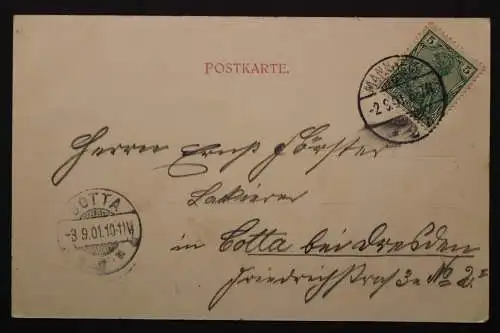 POSTKARTE.
MANNHEIM
-2.9.01.
5 5
Herrn Ernst Förster
Lackierer
in Cotta bei Dresden
Friedrichstraße No 2.
COTTA
-3.9.01.10-11V.